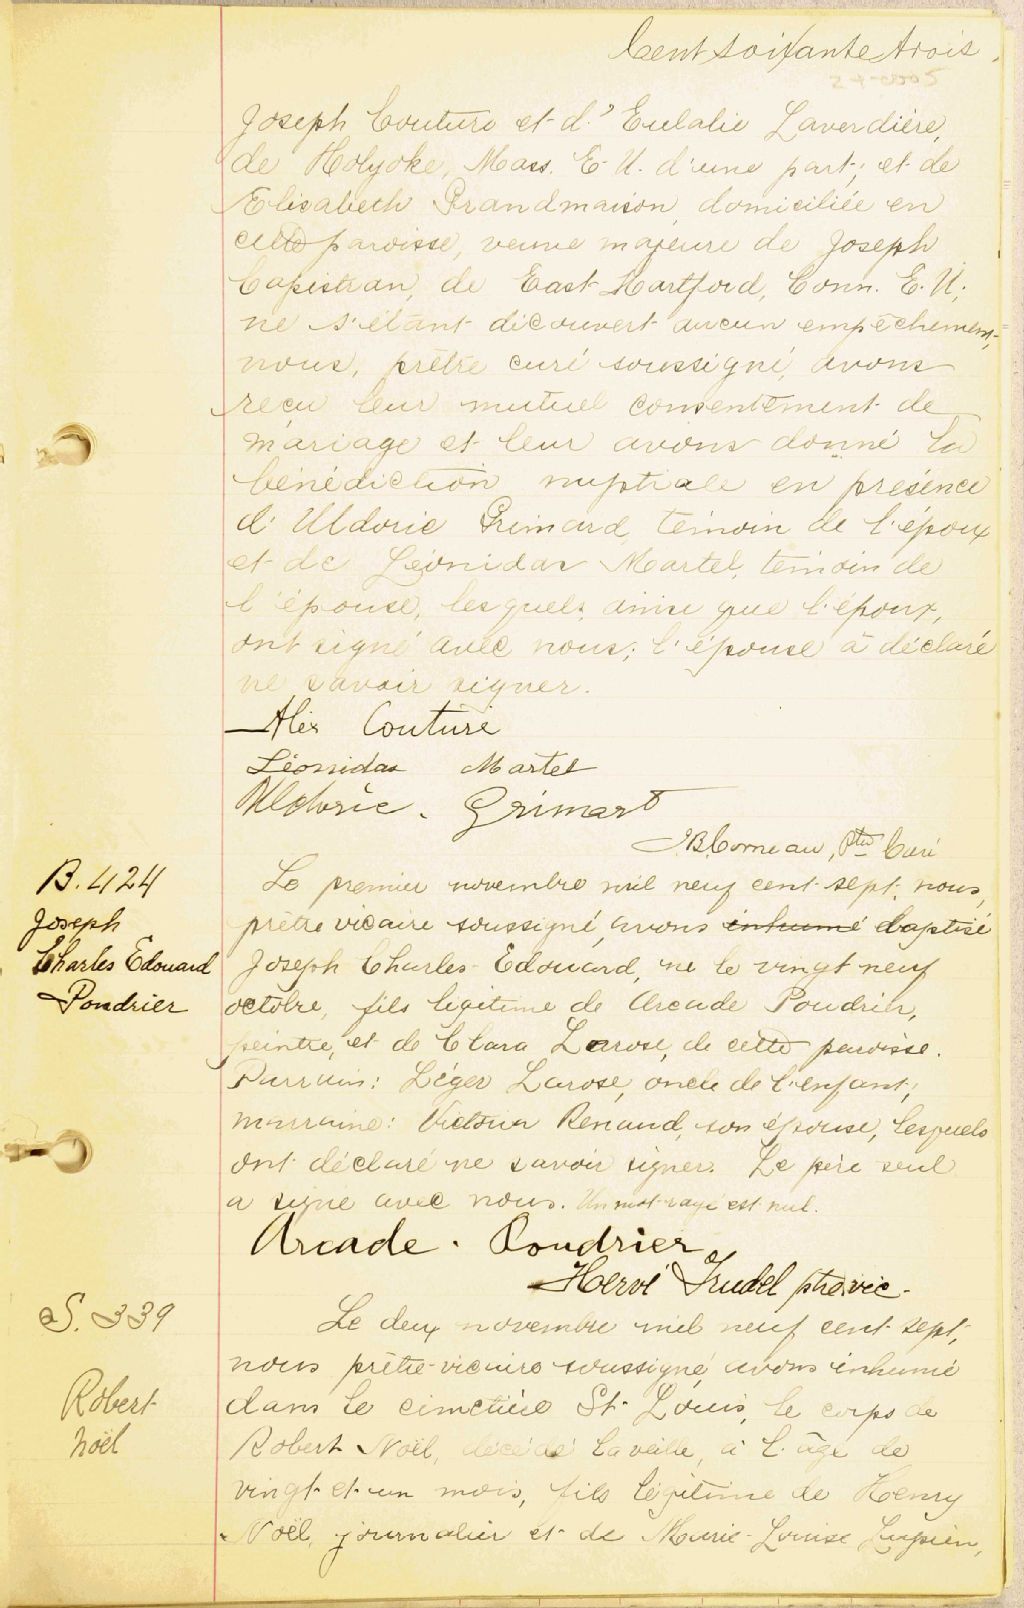 Cent soixante trois.
Joseph Couture et d'Eulalie Laverdière,
de Holyoke, Mass. E. U. d'une part; et de
Elisabeth Grandmaison, domiciliée en
cette paroisse, veuve majeure de Joseph
Capistran, de East Hartford, Conn. E. U.;
ne s'étant découvert aucun empêchement,
nous, prêtre curé soussigné, avons
reçu leur mutuel consentement de
mariage et leur avons donné la
bénédiction nuptiale en présence
d'Uldoric Grimard, témoin de l'époux
et de Léonidas Martel, témoin de
l'épouse, lesquels ainsi que l'époux,
ont signé avec nous; l'épouse a déclaré
ne savoir signer.
Alex Couture
Léonidas Martel
Uldoric. Grimard
J.B. Comeau, Ptre Curé
B. 424
Joseph
Charles Edouard
Poudrier
Le premier novembre mil neuf cent sept, nous,
prêtre vicaire soussigné, avons inhumé baptisé
Joseph Charles-Edouard, né le vingt neuf
octobre, fils légitime de Arcade Poudrier,
peintre, et de Clara Larose, de cette paroisse.
Parrain: Léger Larose, oncle de l'enfant;
marraine: Victoria Renaud, son épouse, lesquels
ont déclaré ne savoir signer. Le père seul
a signé avec nous. Un mot rayé est nul.
Arcade. Poudrier
Hervé Trudel ptre vic.
S. 339
Robert
Noël
Le deux novembre mil neuf cent sept,
nous prêtre-vicaire soussigné, avons inhumé
dans le cimetière St-Louis, le corps de
Robert Noël, décédé la veille, à l'âge de
vingt-et-un mois, fils légitime de Henry
Noël, journalier et de Marie-Louise Lupien,